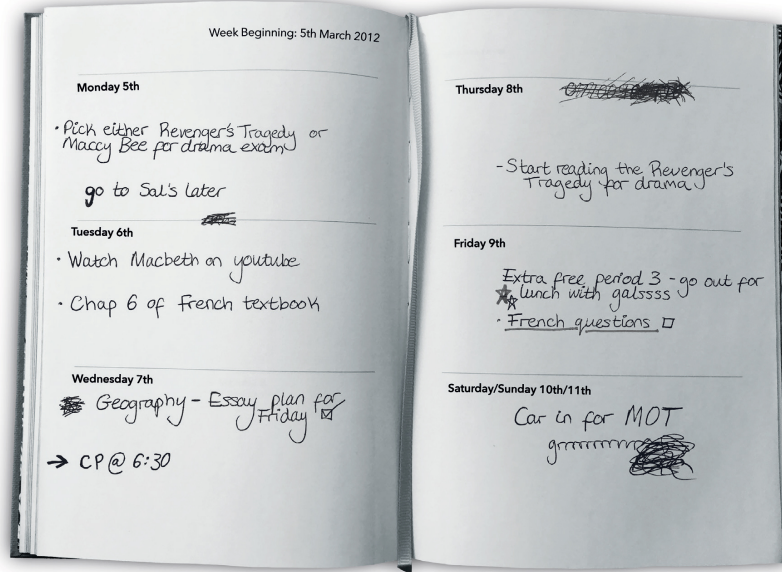 Week Beginning: 5th March 2012
Monday 5th
• Pick either Revenger's Tragedy or
Maccy Bee for drama exam
go to Sal's later
Tuesday 6th
• Watch Macbeth on youtube
• Chap 6 of French textbook
Wednesday 7th
Geography - Essay plan for
Friday ☑
→ CP @ 6:30
Thursday 8th
- Start reading the Revenger's
Tragedy for drama
Friday 9th
Extra free period 3 - go out for
lunch with galssss
• French questions ☐
Saturday/Sunday 10th/11th
Car in for MOT
grrrrrrrrr